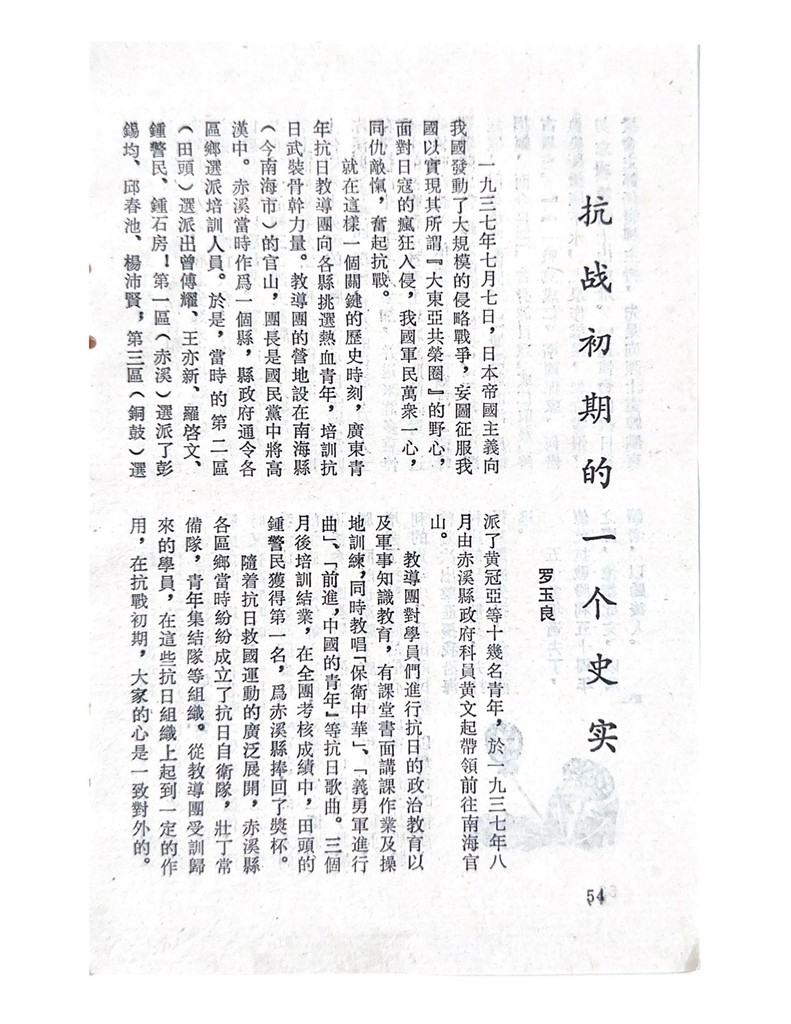 抗战初期的一个史实
罗玉良
一九三七年七月七日，日本帝國主義向
我國發動了大規模的侵略戰爭，妄圖征服我
國以實現其所謂『大東亞共榮圈』的野心，
面對日寇的瘋狂入侵，我國軍民萬衆一心，
同仇敵愾，奮起抗戰。
就在這樣一個關鍵的歷史時刻，廣東青
年抗日教導團向各縣挑選熱血青年，培訓抗
日武裝骨幹力量。教導團的營地設在南海縣
（今南海市）的官山，團長是國民黨中將高
漢中。赤溪當時作爲一個縣，縣政府通令各
區鄉選派培訓人員。於是，當時的第二區
（田頭）選派出曾傳耀、王亦新、羅啓文、
鍾警民、鍾石房！第一區（赤溪）選派了彭
錫均、邱春池、楊沛賢，第三區（銅鼓）選
派了黄冠亞等十幾名青年，於一九三七年八
月由赤溪縣政府科員黄文起帶領前往南海官
山。
教導團對學員們進行抗日的政治教育以
及軍事知識教育，有課堂書面講課作業及操
地訓練，同時教唱「保衛中華」、「義勇軍進行
曲」、「前進，中國的青年」等抗日歌曲。三個
月後培訓結業，在全團考核成績中，田頭的
鍾警民獲得第一名，爲赤溪縣捧回了獎杯。
隨着抗日救國運動的廣泛展開，赤溪縣
各區鄉當時紛紛成立了抗日自衛隊，壯丁常
備隊，青年集結隊等組織。從教導團受訓歸
來的學員，在這些抗日組織上起到一定的作
用，在抗戰初期，大家的心是一致對外的。
54